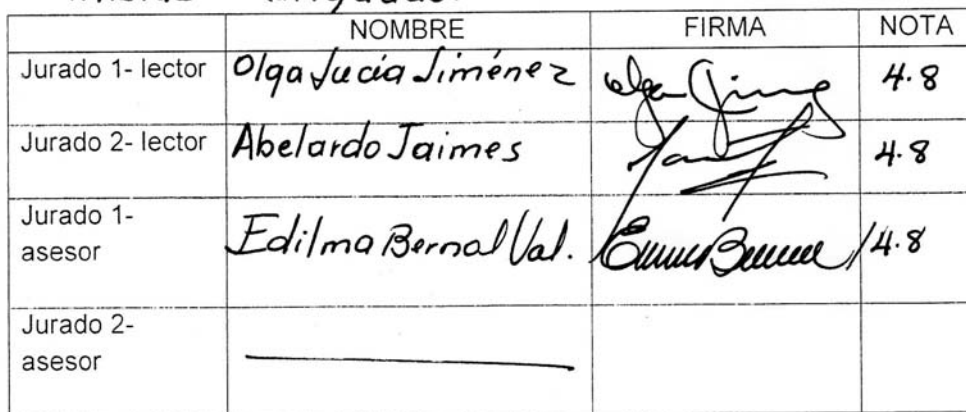 NOMBRE FIRMA NOTA
Jurado 1- lector Olga Lucía Jiménez 4.8
Jurado 2- lector Abelardo Jaimes 4.8
Jurado 1-
asesor Edilma Bernal Val. 4.8
Jurado 2-
asesor